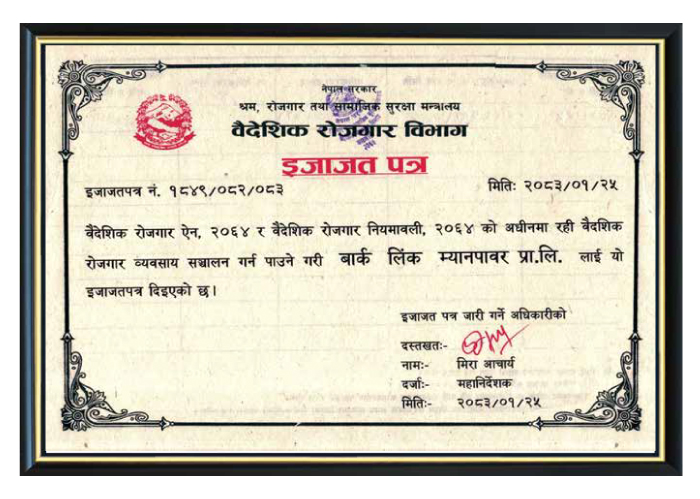 नेपाल सरकार
श्रम, रोजगार तथा सामाजिक सुरक्षा मन्त्रालय
वैदेशिक रोजगार विभाग
इजाजत पत्र
इजाजतपत्र नं. १८४९/०८२/०८३
मितिः २०८३/०१/२५
वैदेशिक रोजगार ऐन, २०६४ र वैदेशिक रोजगार नियमावली, २०६४ को अधीनमा रही वैदशिक
रोजगार व्यवसाय सञ्चालन गर्न पाउने गरी बार्क लिंक म्यानपावर प्रा.लि. लाई यो
इजाजतपत्र दिइएको छ।
इजाजत पत्र जारी गर्ने अधिकारीको
दस्तखतः-
नामः- मिरा आचार्य
दर्जाः- महानिर्देशक
मितिः- २०८३/०१/२५